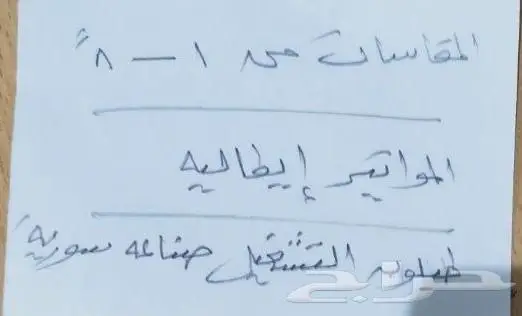 المقاسات من ١ — ٨"
المواتير إيطاليه
طبلون التشغيل صناعه سورية
حراج